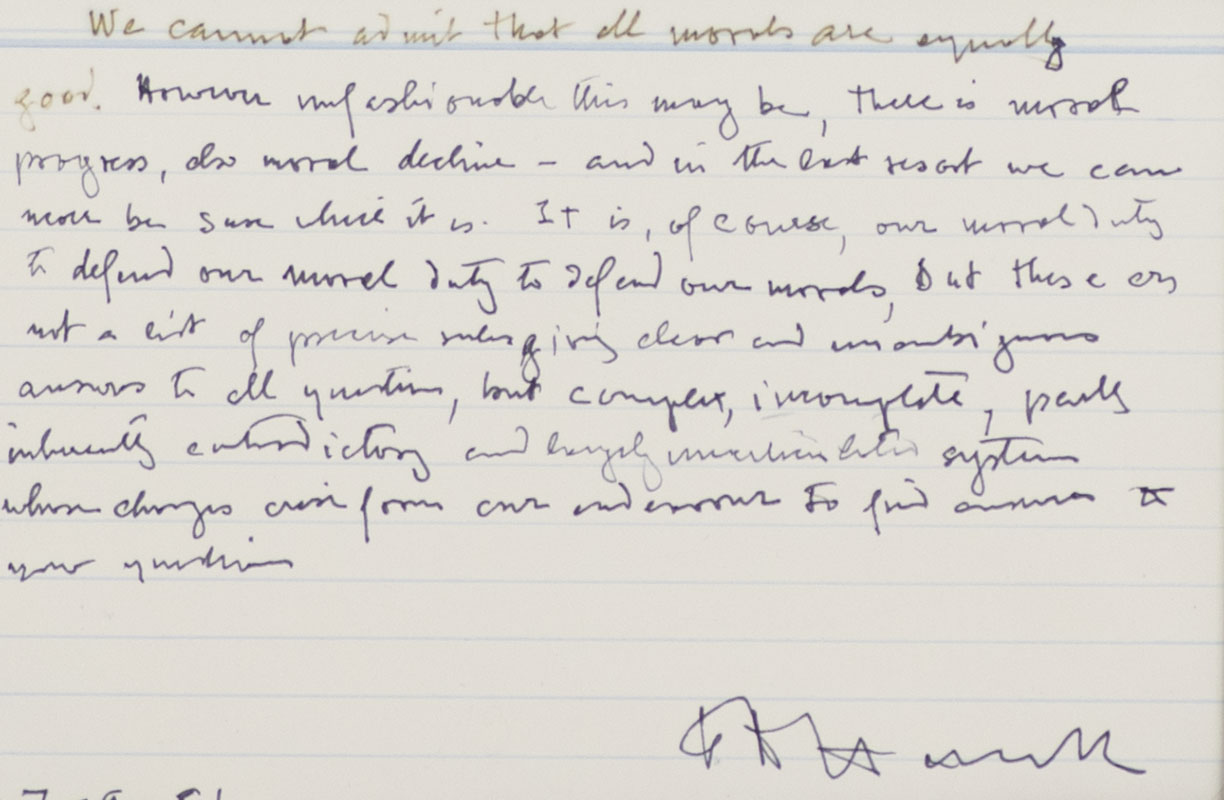 We cannot admit that all morals are equally
good. However unfashionable this may be, there is moral
progress, also moral decline – and in the last resort we can
never be sure which it is. It is, of course, our moral duty
to defend our moral duty to defend our morals, but these are
not a list of precise rules giving clear and unambiguous
answers to all questions, but complex, incomplete, partly
inherently contradictory and largely unarticulated system
whose changes arise from our endeavour to find answers to
new questions